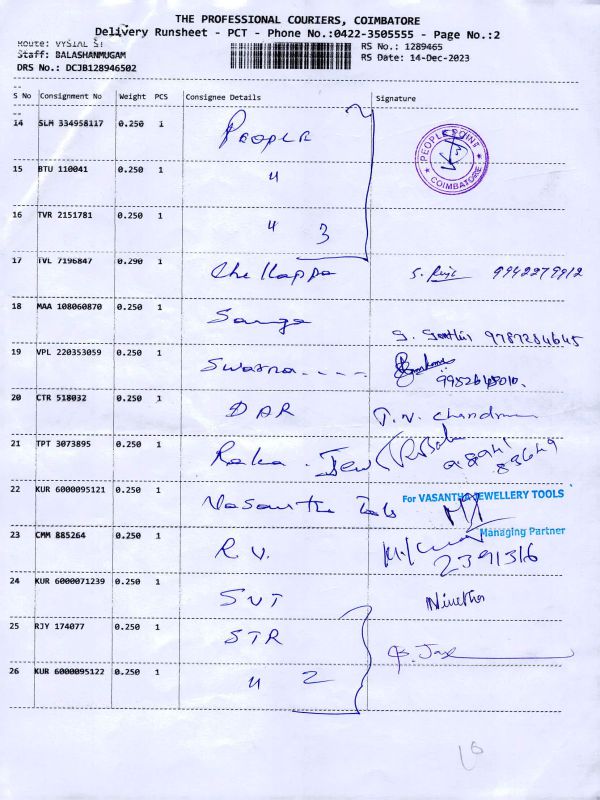 THE PROFESSIONAL COURIERS, COIMBATORE
Delivery Runsheet - PCT - Phone No.:0422-3505555 - Page No.:2
Route: VYSIAL ST
Staff: BALASHANMUGAM
DRS No.: DCJB128946502
RS No.: 1289465
RS Date: 14-Dec-2023
S No Consignment No Weight PCS Consignee Details Signature
14 SLM 334958117 0.250 1 People
PEOPLE POINT
COIMBATORE
15 BTU 110041 0.250 1 "
16 TVR 2151781 0.250 1 " 3
17 TVL 7196847 0.290 1 Chellappa S. 9942279912
18 MAA 108060870 0.250 1 Sanga S. 9787284645
19 VPL 220353059 0.250 1 Swarna ----
20 CTR 518032 0.250 1 DAR T.V. Chandran
21 TPT 3073895 0.250 1 Raka . Jew R Babu
98941
83649
22 KUR 6000095121 0.250 1 Vasantha Tools For VASANTHA JEWELLERY TOOLS
Managing Partner
23 CMM 885264 0.250 1 R.V.
2391316
24 KUR 6000071239 0.250 1 SVT Nivetha
25 RJY 174077 0.250 1 STR
26 KUR 6000095122 0.250 1 " 2